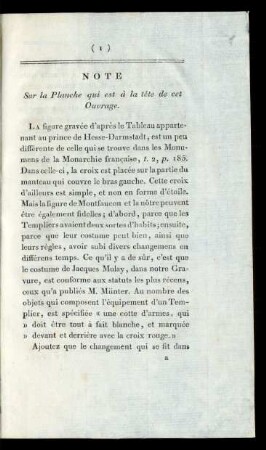 ( 1 )
NOTE
Sur la Planche qui est à la tête de cet
Ouvrage.
LA figure gravée d'après le Tableau apparte-
nant au prince de Hesse-Darmstadt, est un peu
différente de celle qui se trouve dans les Monu-
mens de la Monarchie française, t. 2, p. 185.
Dans celle-ci, la croix est placée sur la partie du
manteau qui couvre le bras gauche. Cette croix
d'ailleurs est simple, et non en forme d'étoile.
Mais la figure de Montfaucon et la nôtre peuvent
être également fidelles; d'abord, parce que les
Templiers avaient deux sortes d'habits; ensuite,
parce que leur costume peut bien, ainsi que
leurs règles, avoir subi divers changemens en
différens temps. Ce qu'il y a de sûr, c'est que
le costume de Jacques Molay, dans notre Gra-
vure, est conforme aux statuts les plus récens,
ceux qu'a publiés M. Münter. Au nombre des
objets qui composent l'équipement d'un Tem-
plier, est spécifiée « une cotte d'armes, qui
» doit être tout à fait blanche, et marquée
» devant et derrière avec la croix rouge. »
Ajoutez que le changement qui se fit dans
a